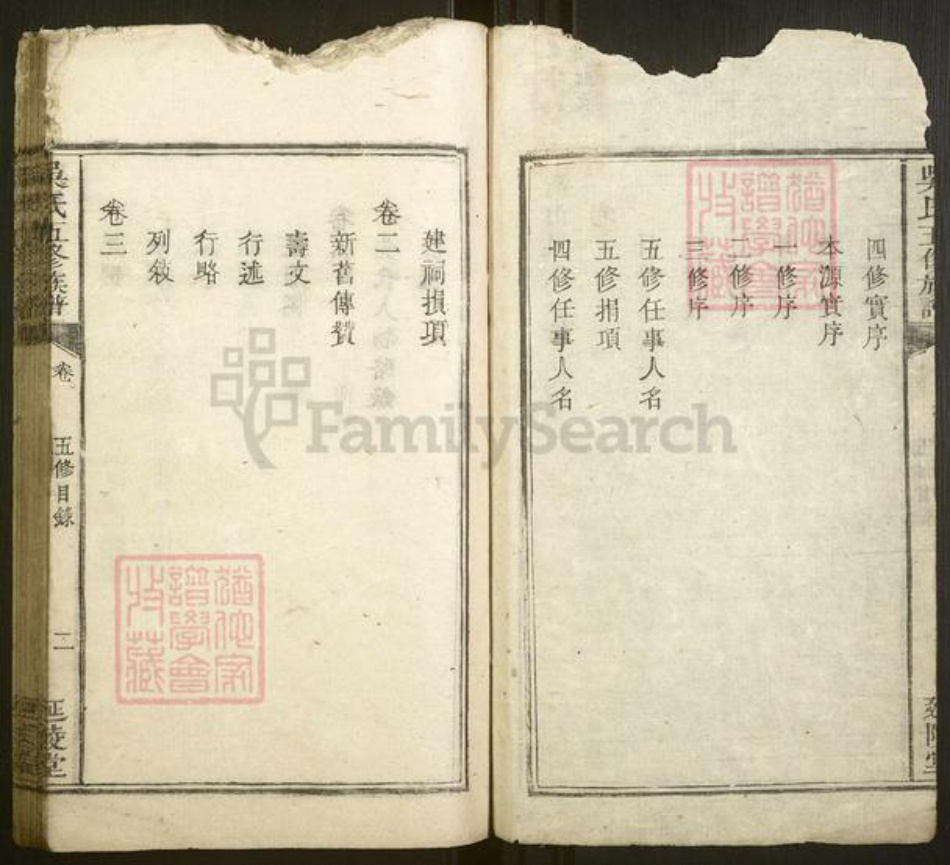 四修實序
本源實序
一修序
二修序
三修序
五修任事人名
五修捐項
四修任事人名
猶他家
譜學會
收藏
建祠損項
卷二
新舊傳贊
壽文
行述
行略
列敘
卷三
吳氏五修族譜
卷
五修目錄
二
延陵堂
猶他家
譜學會
收藏
FamilySearch